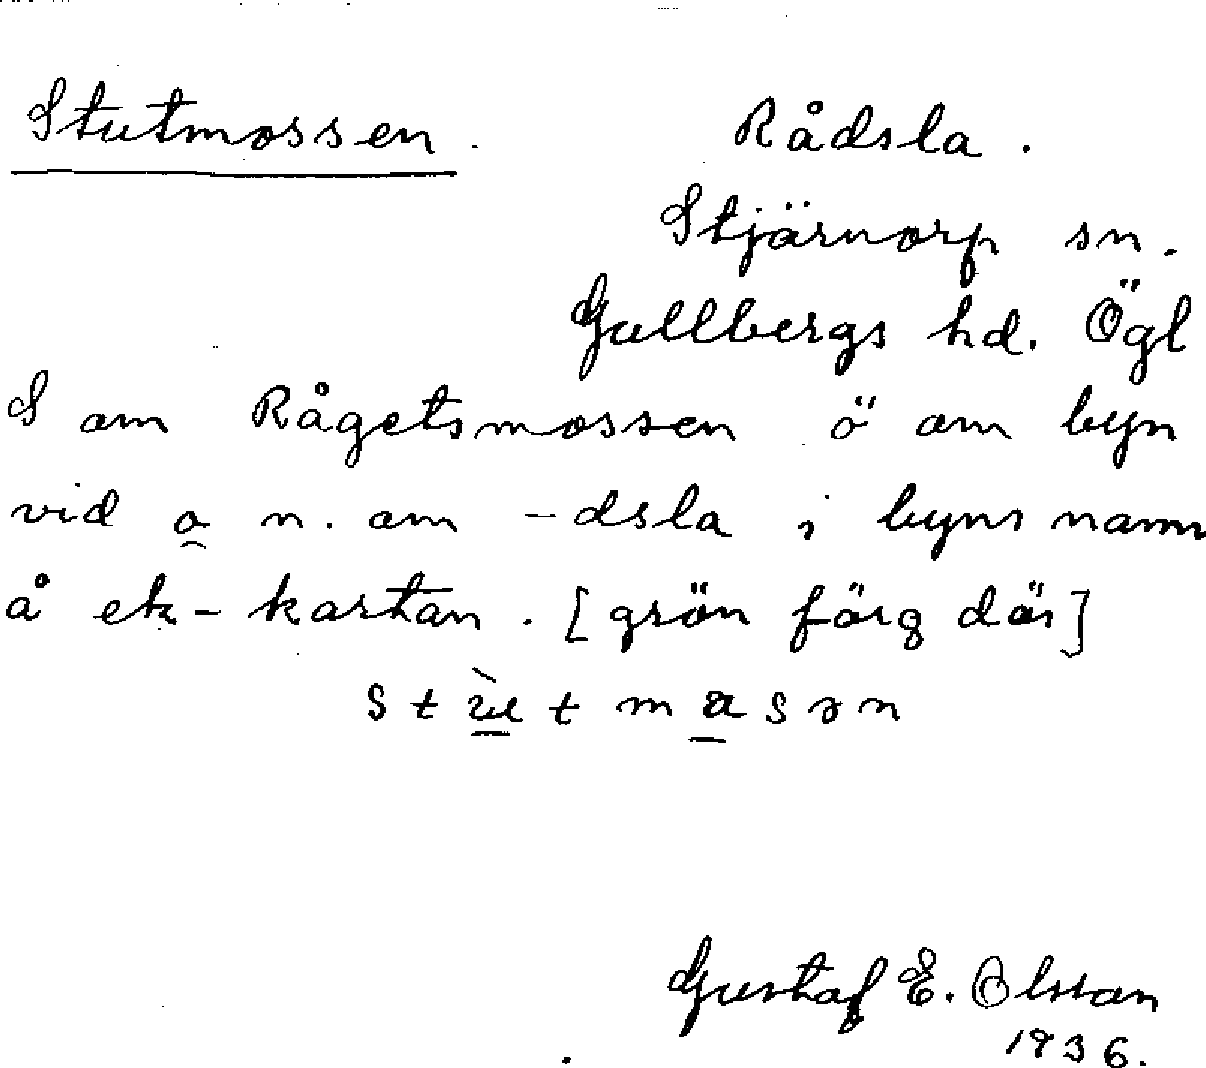 Stutmossen. Rådsla.
Stjärnorp sn.
Gullbergs hd. Ögl
S om Rågetsmossen ö om byn
vid o n. om -dsla i byns namn
å ek-kartan. [grön färg där]
stùtmasən
Gustaf E. Olsson
1936.